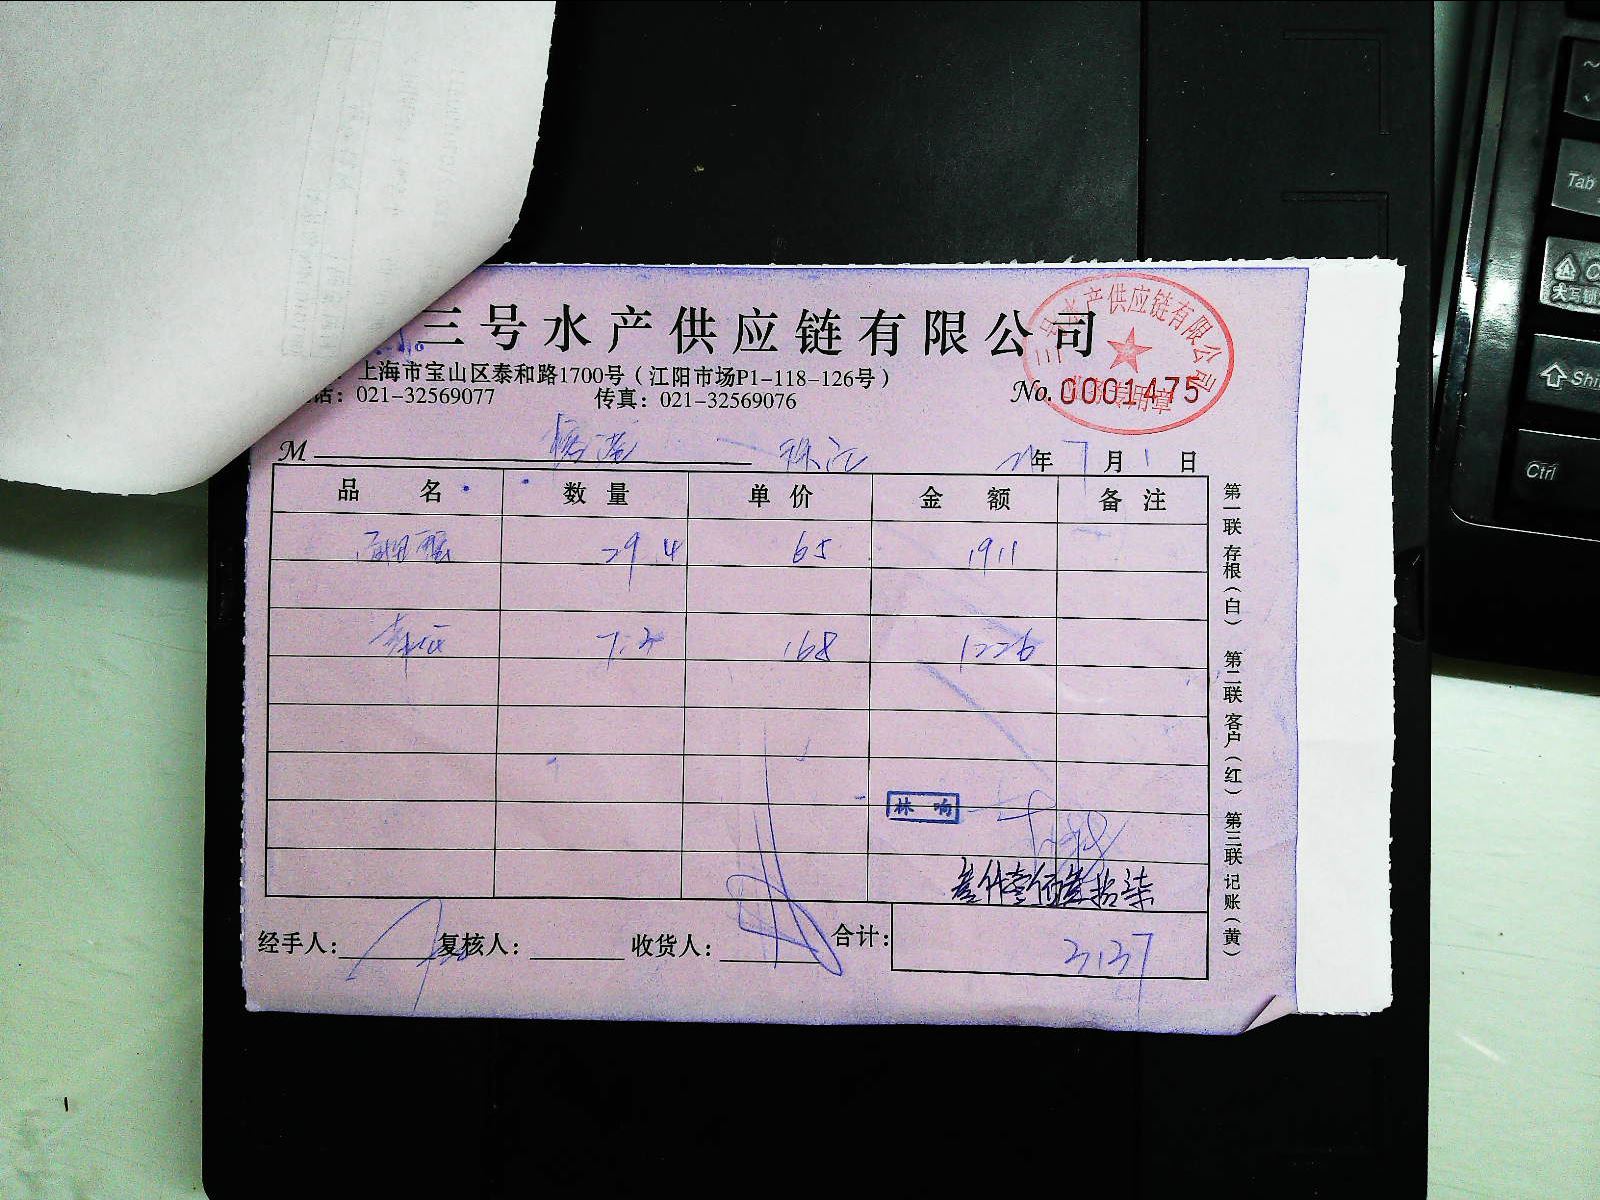 三号水产供应链有限公司
上海市宝山区泰和路1700号（江阳市场P1-118-126号）
话：021-32569077 传真：021-32569076
三号水产供应链有限公司
专用章
No. 0001475
M 年 7 月 1 日
品名 数量 单价 金额 备注
29.4 65 1911
7.3 168 1226
林 响
叁仟壹佰叁拾柒
经手人： 复核人： 收货人： 合计： 3137
第一联 存根（白） 第二联 客户（红） 第三联 记账（黄）
Tab
大写锁
Shi
Ctrl